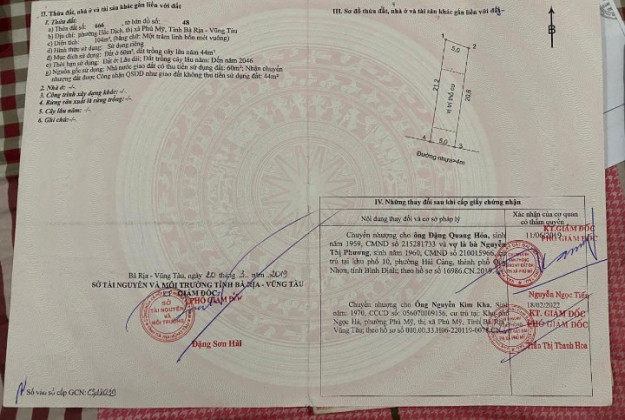 II. Thửa đất, nhà ở và tài sản khác gắn liền với đất
1. Thửa đất:
a) Thửa đất số: 466, tờ bản đồ số: 48
b) Địa chỉ: phường Hắc Dịch, thị xã Phú Mỹ, Tỉnh Bà Rịa - Vũng Tàu
c) Diện tích: 104m² (bằng chữ: Một trăm linh bốn mét vuông)
d) Hình thức sử dụng: Sử dụng riêng
đ) Mục đích sử dụng: Đất ở 60m², đất trồng cây lâu năm 44m²
e) Thời hạn sử dụng: Đất ở Lâu dài; Đất trồng cây lâu năm: Đến năm 2046
g) Nguồn gốc sử dụng: Nhà nước giao đất có thu tiền sử dụng đất: 60m²; Nhận chuyển
nhượng đất được Công nhận QSDĐ như giao đất không thu tiền sử dụng đất: 44m²
2. Nhà ở: -/-
3. Công trình xây dựng khác: -/-
4. Rừng sản xuất là rừng trồng: -/-
5. Cây lâu năm: -/-
6. Ghi chú: -/-
Bà Rịa - Vũng Tàu, ngày 20 tháng 3 năm 2019
SỞ TÀI NGUYÊN VÀ MÔI TRƯỜNG TỈNH BÀ RỊA - VŨNG TÀU
KT. GIÁM ĐỐC
PHÓ GIÁM ĐỐC
SỞ
TÀI NGUYÊN
VÀ
MÔI TRƯỜNG
Đặng Sơn Hải
Số vào sổ cấp GCN:
III. Sơ đồ thửa đất, nhà ở và tài sản khác gắn liền với đất
B
1
2
5,0
21,2
20,8
4
5,0
3
Đường nhựa>4m
IV. Những thay đổi sau khi cấp giấy chứng nhận
Nội dung thay đổi và cơ sở pháp lý
Xác nhận của cơ quan
có thẩm quyền
Chuyển nhượng cho ông Đặng Quang Hóa, sinh
năm 1959, CMND số 215281733 và vợ là bà Nguyễn
Thị Phương, sinh năm 1960, CMND số 210015966, cùng
cư trú tại khu phố 10, phường Hải Cảng, thành phố Quy
Nhơn, tỉnh Bình Định; theo hồ sơ số 16986.CN
KT. GIÁM ĐỐC
PHÓ GIÁM ĐỐC
Nguyễn Ngọc Tiến
Chuyển nhượng cho Ông Nguyễn Kim Kha, Sinh
năm: 1970, CCCD số: 056070009156, cư trú tại: Khu phố
Ngọc Hà, phường Phú Mỹ, thị xã Phú Mỹ, Tỉnh Bà Rịa
Vũng Tàu; theo hồ sơ số 000.00.33.H06-220119-0078.CN
18/02/2022
KT. GIÁM ĐỐC
PHÓ GIÁM ĐỐC
Trần Thị Thanh Hoa